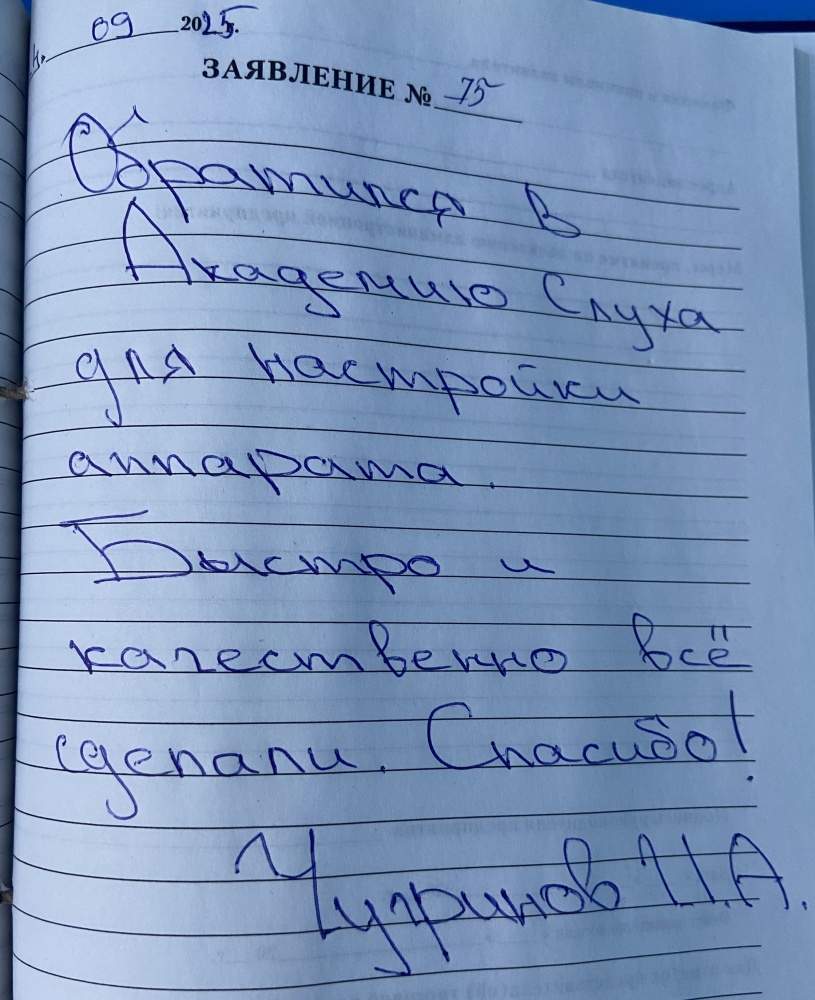 09 2025г.
ЗАЯВЛЕНИЕ № 75
Обратился в
Академию Слуха
для настройки
аппарата.
Быстро и
качественно всё
сделали. Спасибо!
И.А.